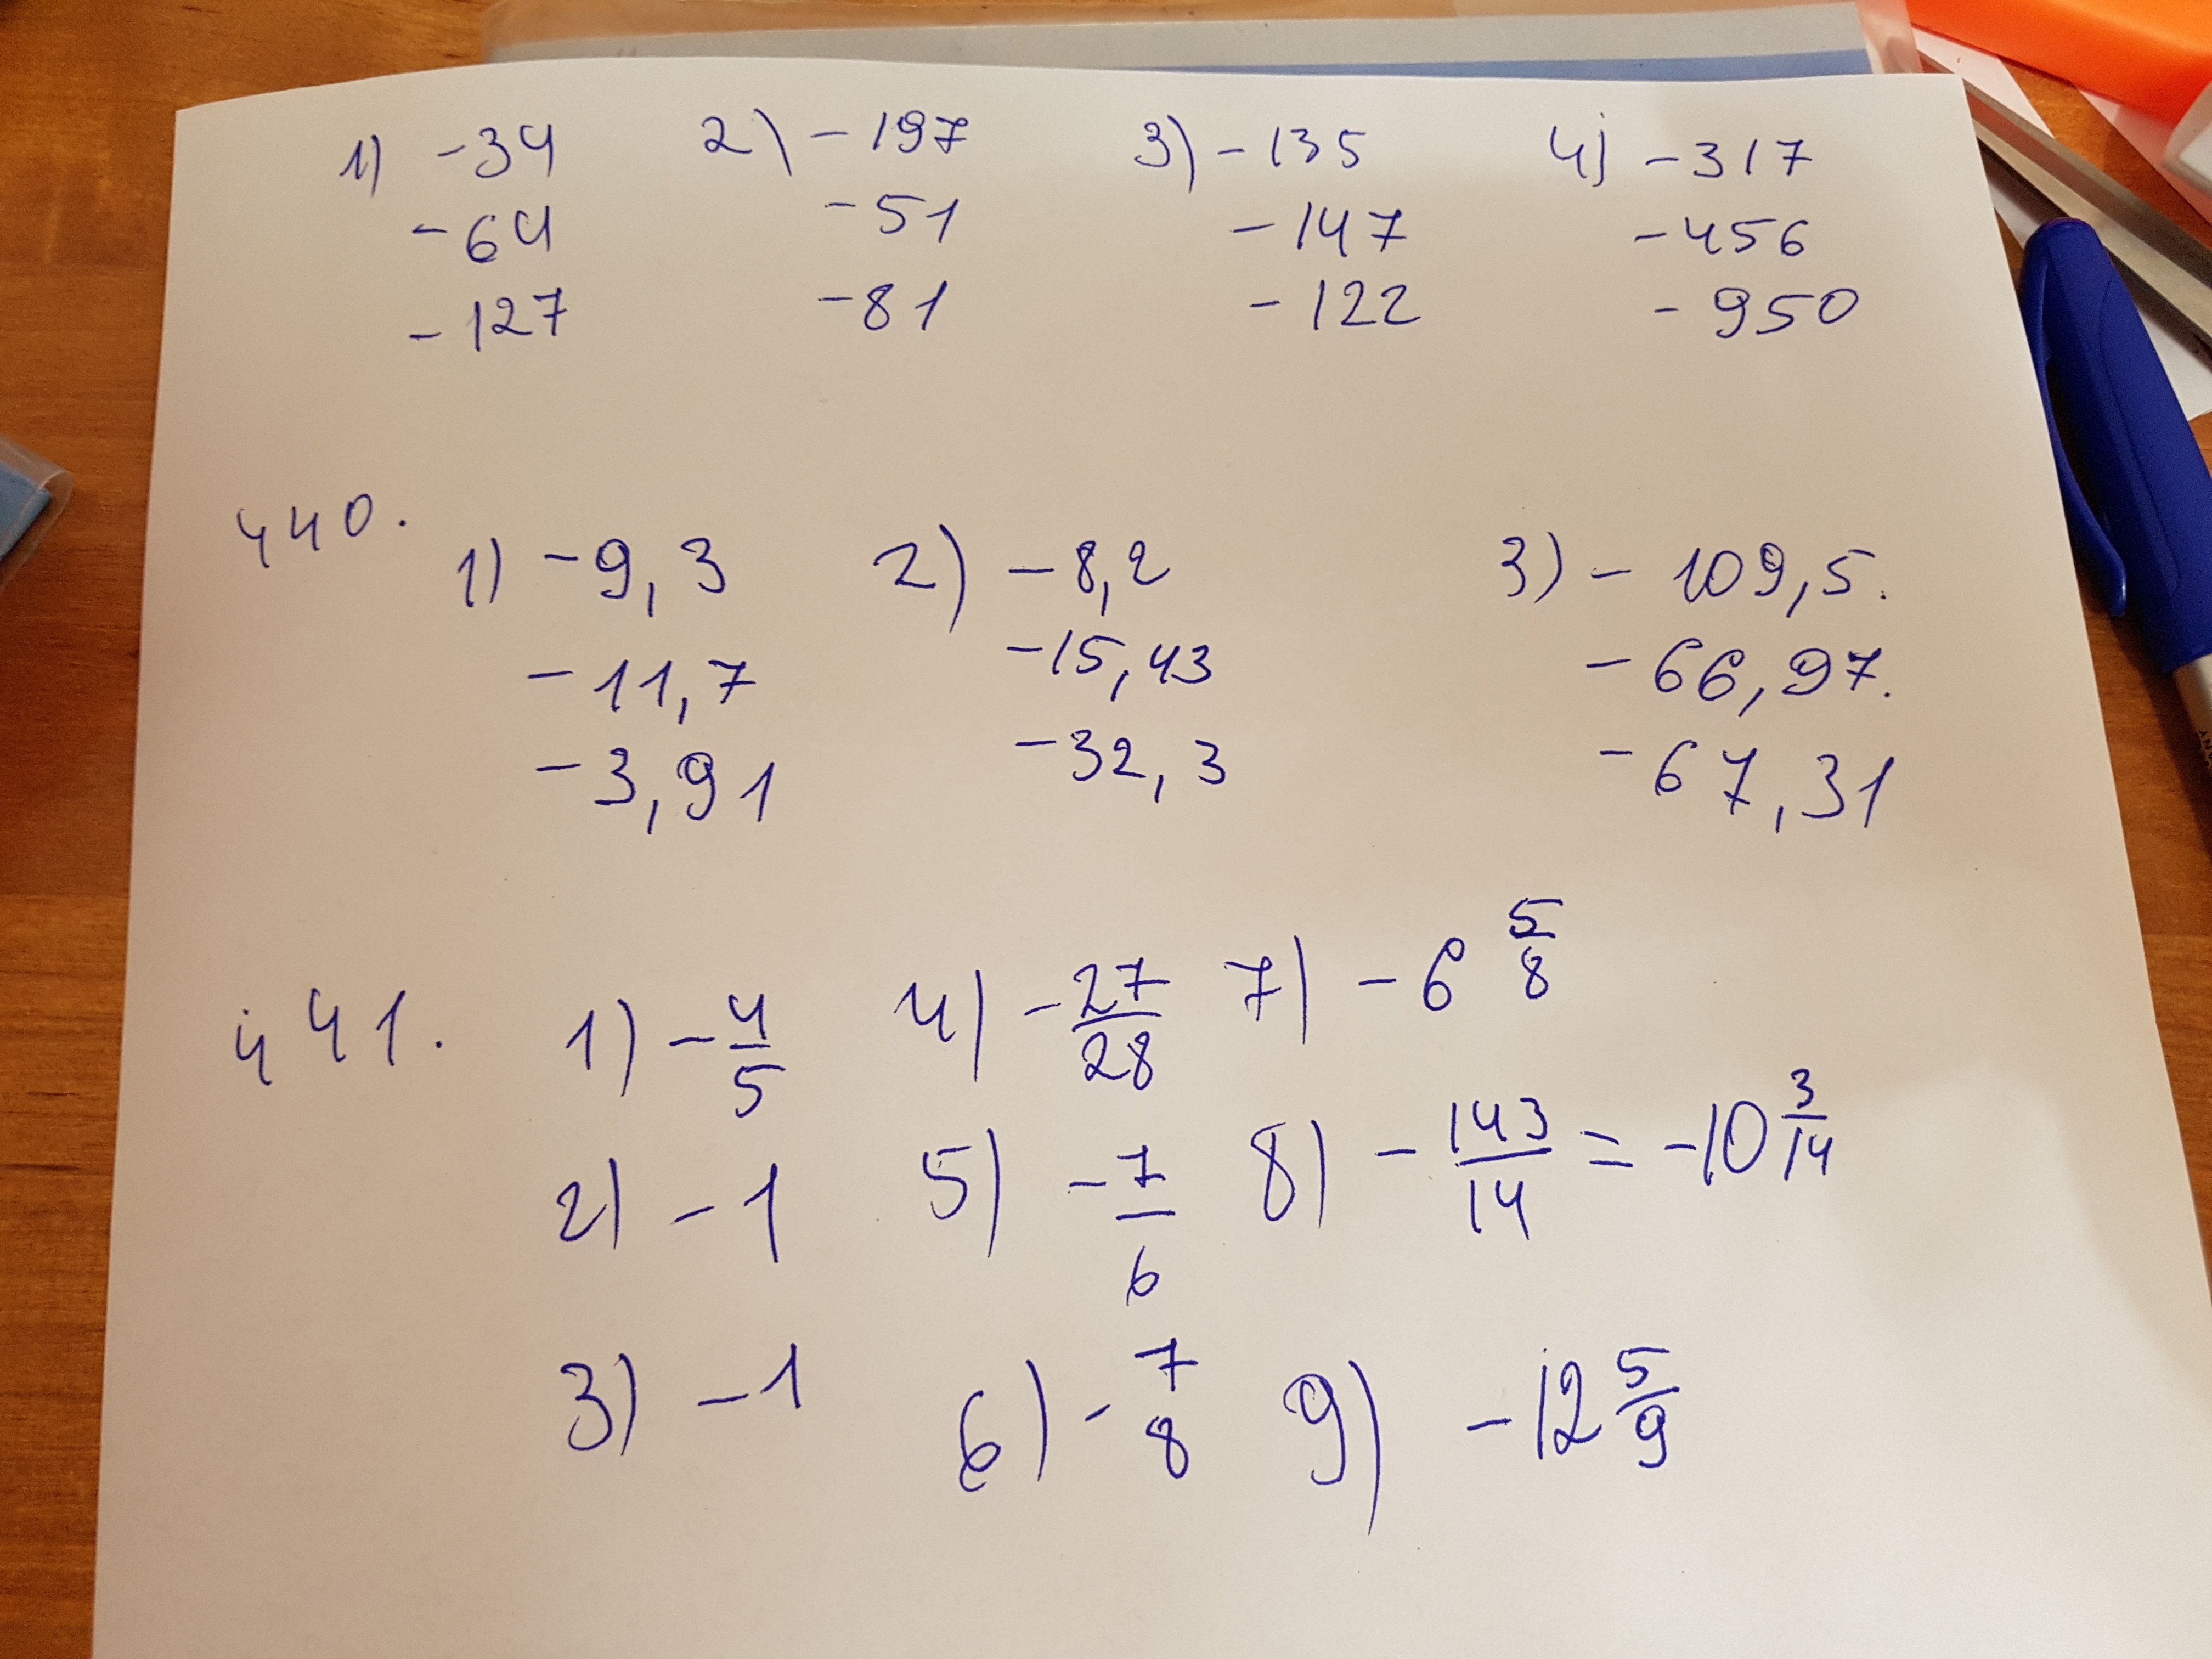 1) -34 2) -197 3) -135 4) -317
-64 -51 -147 -456
-127 -81 -122 -950
440.
1) -9,3 2) -8,2 3) -109,5.
-11,7 -15,43 -66,97.
-3,91 -32,3 -67,31
441. 1) -4/5 4) -27/28 7) -6 5/8
2) -1 5) -7/6 8) -143/14 = -10 3/14
3) -1 6) -7/8 9) -12 5/9